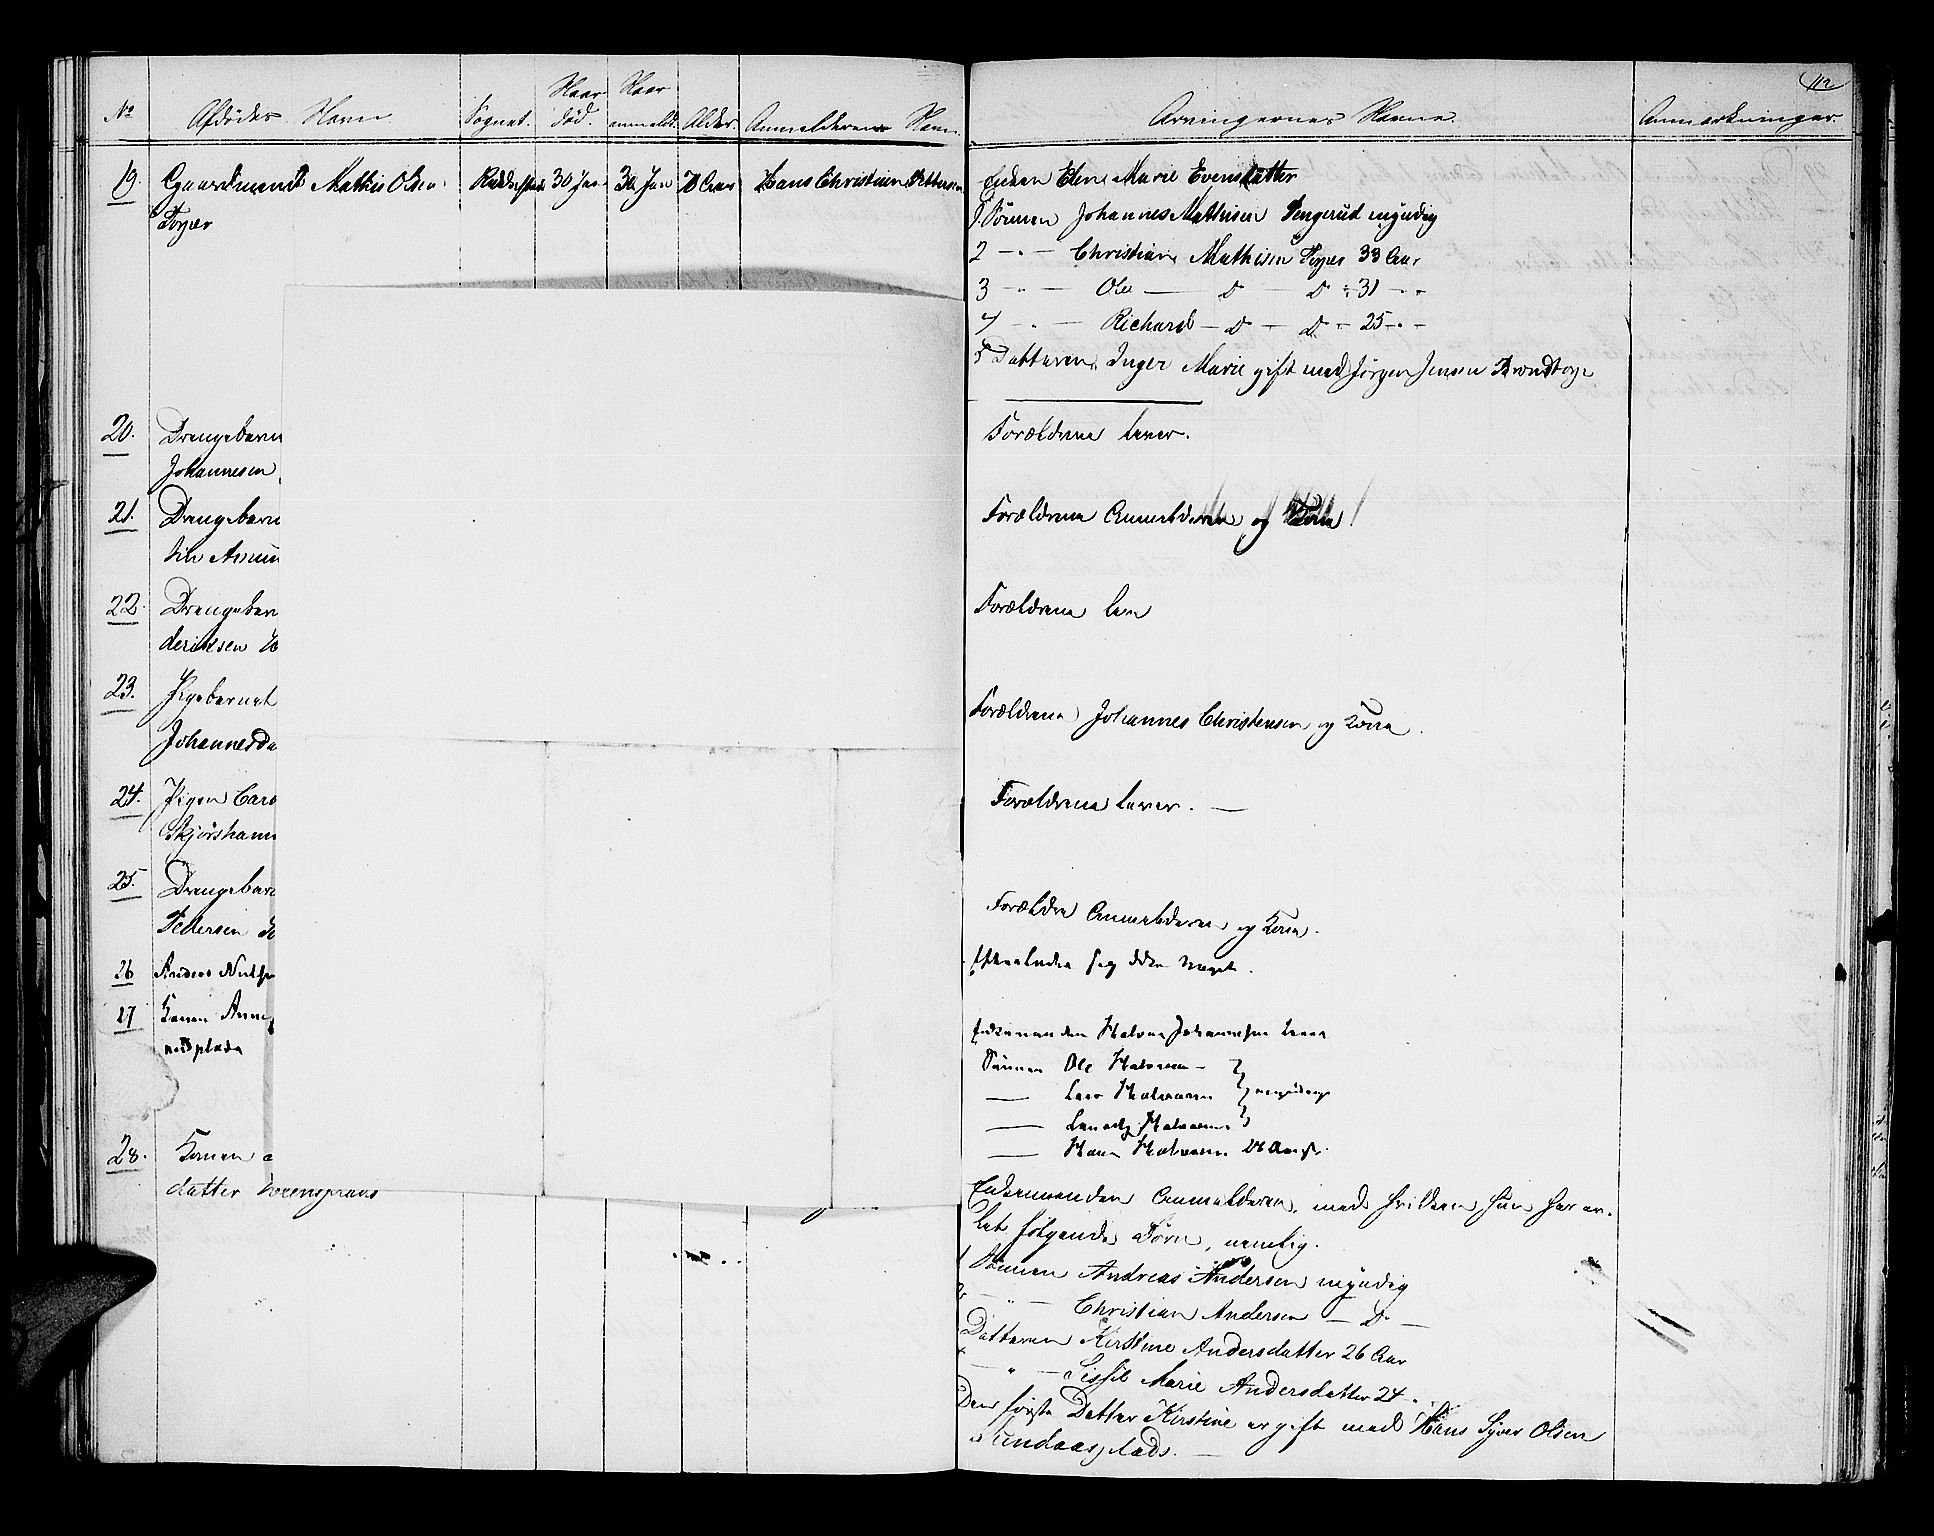 112
No Afdødes Navn Sognet. Naar død. Naar anmeldt. Alder. Anmelderens Navn Arvingernes Navne. Anmærkninger
19. Gaardmand Mathis Olsen 30 Jan 30 Jan 70 Aar Hans Christian Pettersen
Enken Eline Marie Evensdatter
1. Sönnen Johannes Mathisen myndig
2 - " - Christian Mathisen 33 Aar
3 - " - Ole — D — D " 31 - " -
4 - " - Richard — D — D - 25 - " -
5 Datteren Inger Marie gift med Jörgen Jensen
20. Drengebarn
Johannesen
Forældrene lever.
21. Drengebarn
til
Forældrene Anmelderen og Kone
22. Drengebarn
deriksen
Forældrene leve
23. Pigebarnet
Johannesda
Forældrene Johannes Christensen og Kone.
24. Pigen Caro
Forældrene lever. —
25. Drengebarn
Pettersen
Forældre Anmelderen og Kone.
26 Anders
Efterlader sig ikke noget.
27 Konen Anne
plads
Enkemanden Halvor Johannesen
Sönnen Ole Halvorsen -
— Lars Halvorsen myndige
— Halvorsen
— Hans Halvorsen
28. Konen
datter
Enkemanden Anmelderen, med hvilken hun har av-
let følgende Börn, nemlig.
1 Sönnen Andreas Andersen myndig
2 - " - Christian Andersen — D —
Datteren Kirstine Andersdatter 26 Aar
- " - Sissil Marie Andersdatter 24 - " -
Den første Datter Kirstine er gift med Hans Syver Olsen